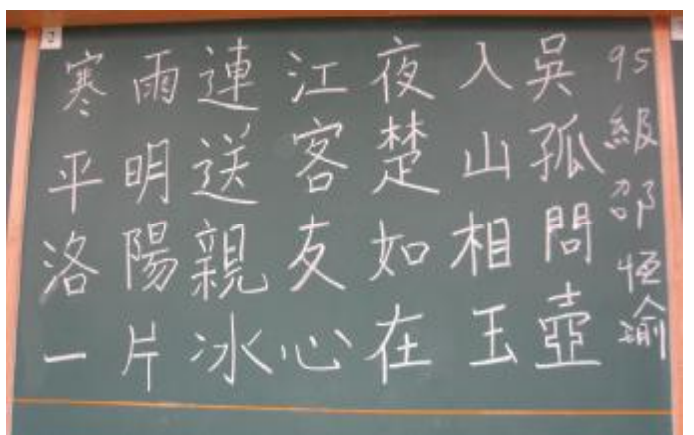 2
寒雨連江夜入吳
平明送客楚山孤
洛陽親友如相問
一片冰心在玉壺
95級邵恆瑜